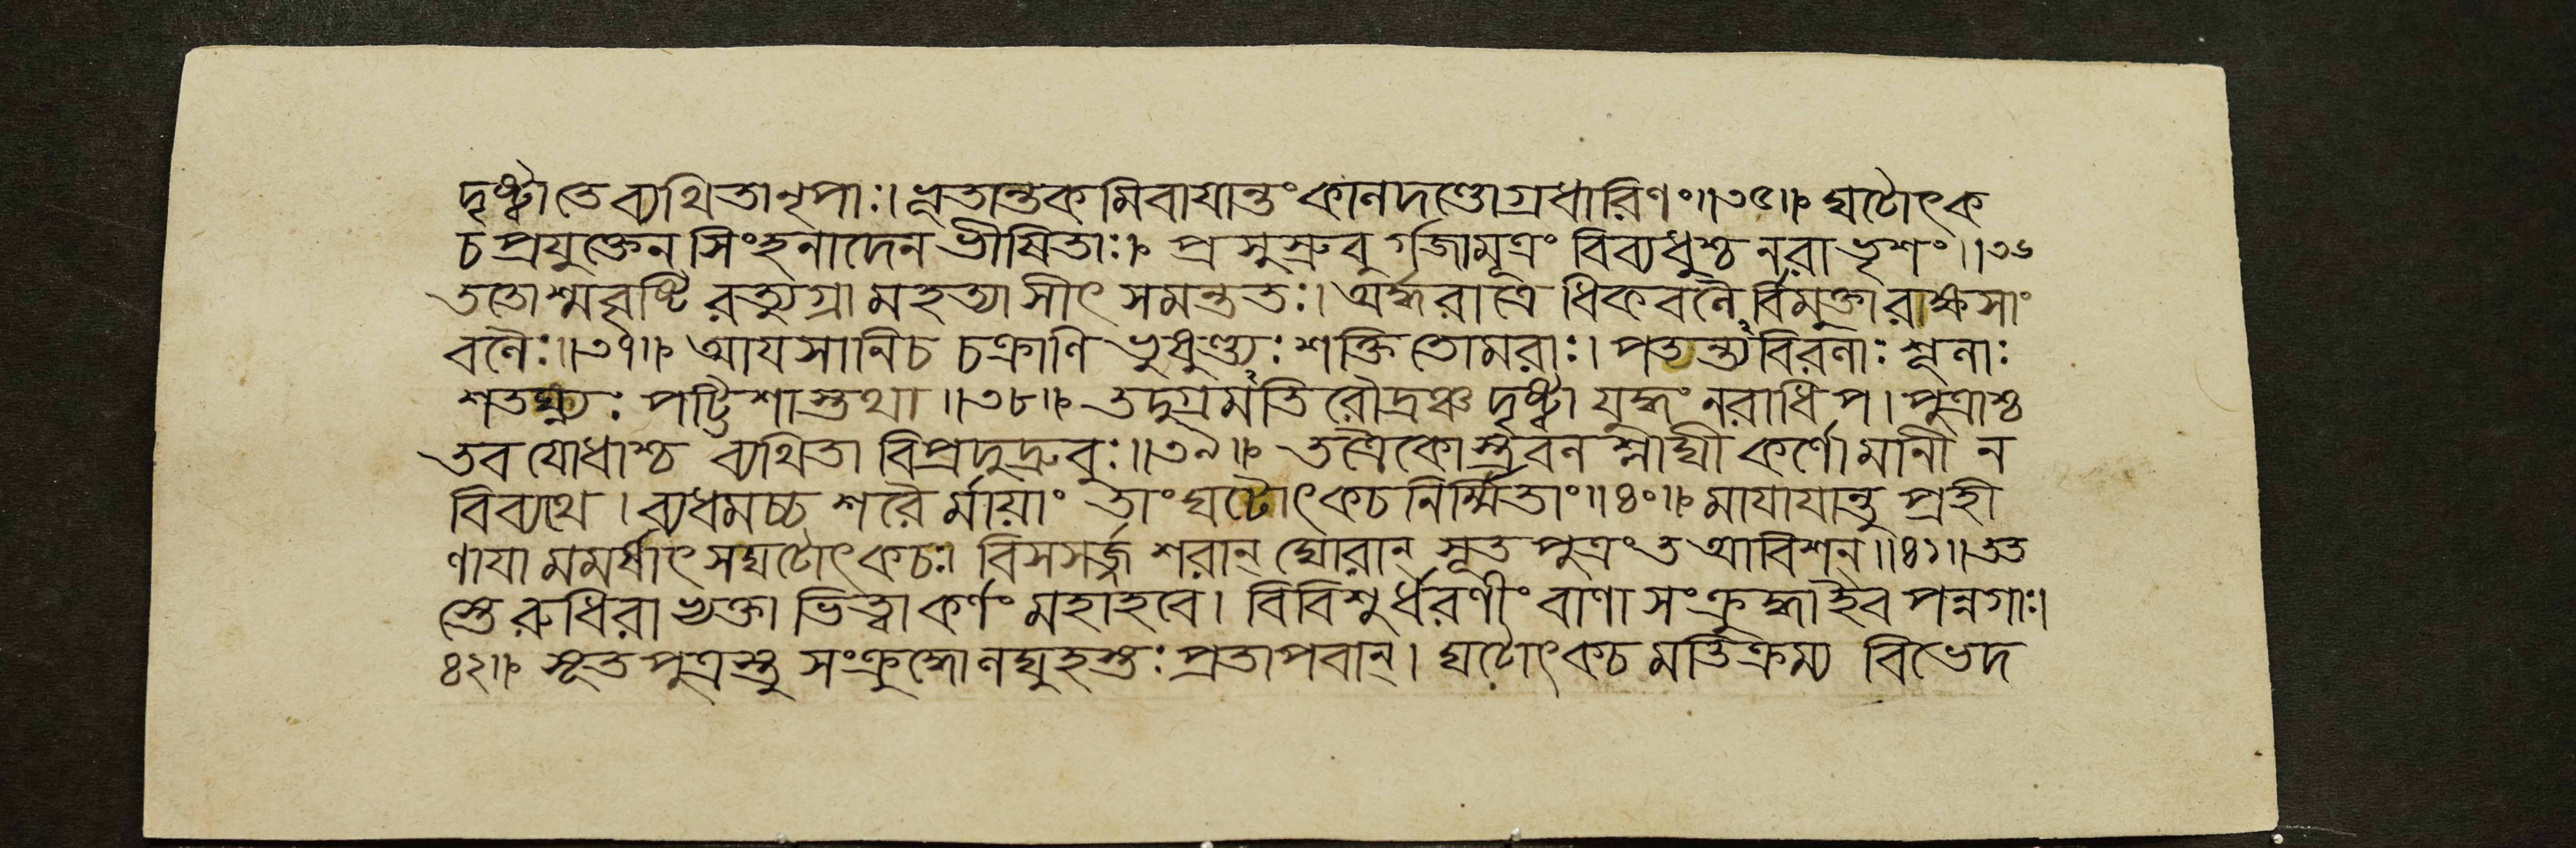 দৃষ্ট্বা তে ব্যথিতা নৃপাঃ। ভূতান্তকমিবায়ান্তং কালদণ্ডোগ্রধারিণং॥৩৫॥ ঘটোৎক
চপ্রযুক্তেন সিংহনাদেন ভীষিতাঃ। প্রসুস্রুবুর্গজা মূত্রং বিব্যধুশ্চ নরা ভৃশং॥৩৬
ততোশ্মবৃষ্টিরত্যুগ্রা মহত্যাসীৎ সমন্ততঃ। অর্দ্ধরাত্রেধিকবলৈর্বিমুক্তা রাক্ষসাং
বলৈঃ॥৩৭॥ আয়সানি চ চক্রাণি ভুষুণ্ড্যঃ শক্তিতোমরাঃ। পতন্ত্যবিরলাঃ শূলাঃ
শতঘ্ন্যঃ পট্টিশাস্তথা॥৩৮॥ তদুগ্রমতিরৌদ্রঞ্চ দৃষ্ট্বা যুদ্ধং নরাধিপ। পুত্রাশ্চ
তব যোধাশ্চ ব্যথিতা বিপ্রদুদ্রুবুঃ॥৩৯॥ তত্রৈকোস্ত্রবলশ্লাঘী কর্ণো মানী ন
বিব্যথে। ব্যধমচ্চ শরৈর্মায়াং তাং ঘটোৎকচনির্ম্মিতাং॥৪০॥ মায়ায়ান্তু প্রহী
ণায়ামমর্ষাৎ স ঘটোৎকচঃ। বিসসর্জ্জ শরান্ ঘোরান্ সূতপুত্রং ত আবিশন্॥৪১॥ তত
স্তে রুধিরাভ্যক্তা ভিত্ত্বা কর্ণং মহাহবে। বিবিশুর্ধরণীং বাণাঃ সংক্রুদ্ধা ইব পন্নগাঃ।
৪২॥ সূতপুত্রস্তু সংক্রুদ্ধো লঘুহস্তঃ প্রতাপবান্। ঘটোৎকচমতিক্রম্য বিভেদ